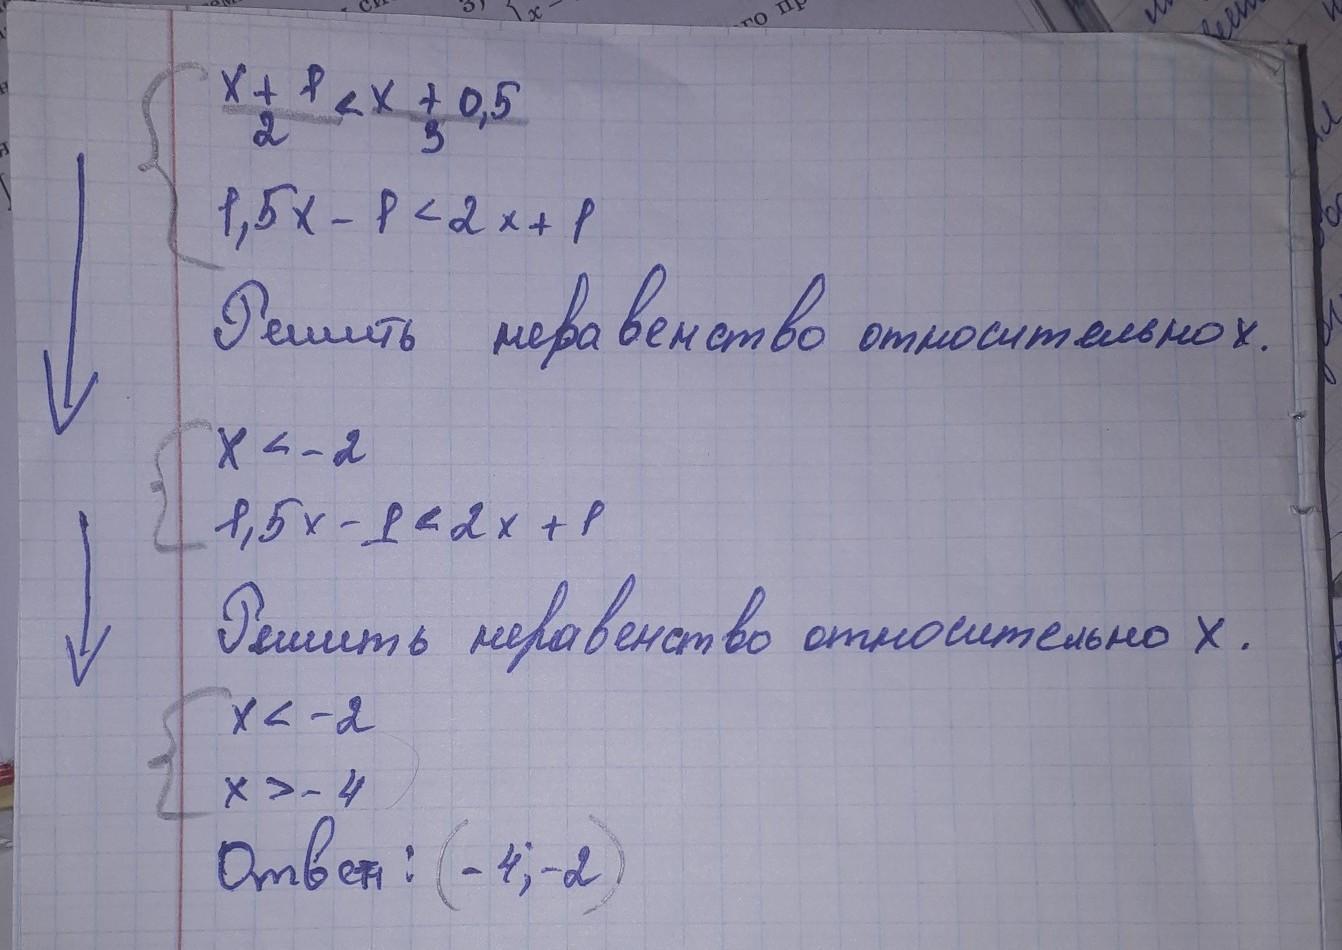 x + 1 < x + 0,5
2 3
1,5x - 1 < 2x + 1
Решить неравенство относительно x.
x < -2
1,5x - 1 < 2x + 1
Решить неравенство относительно x.
x < -2
x > -4
Ответ: (-4; -2)